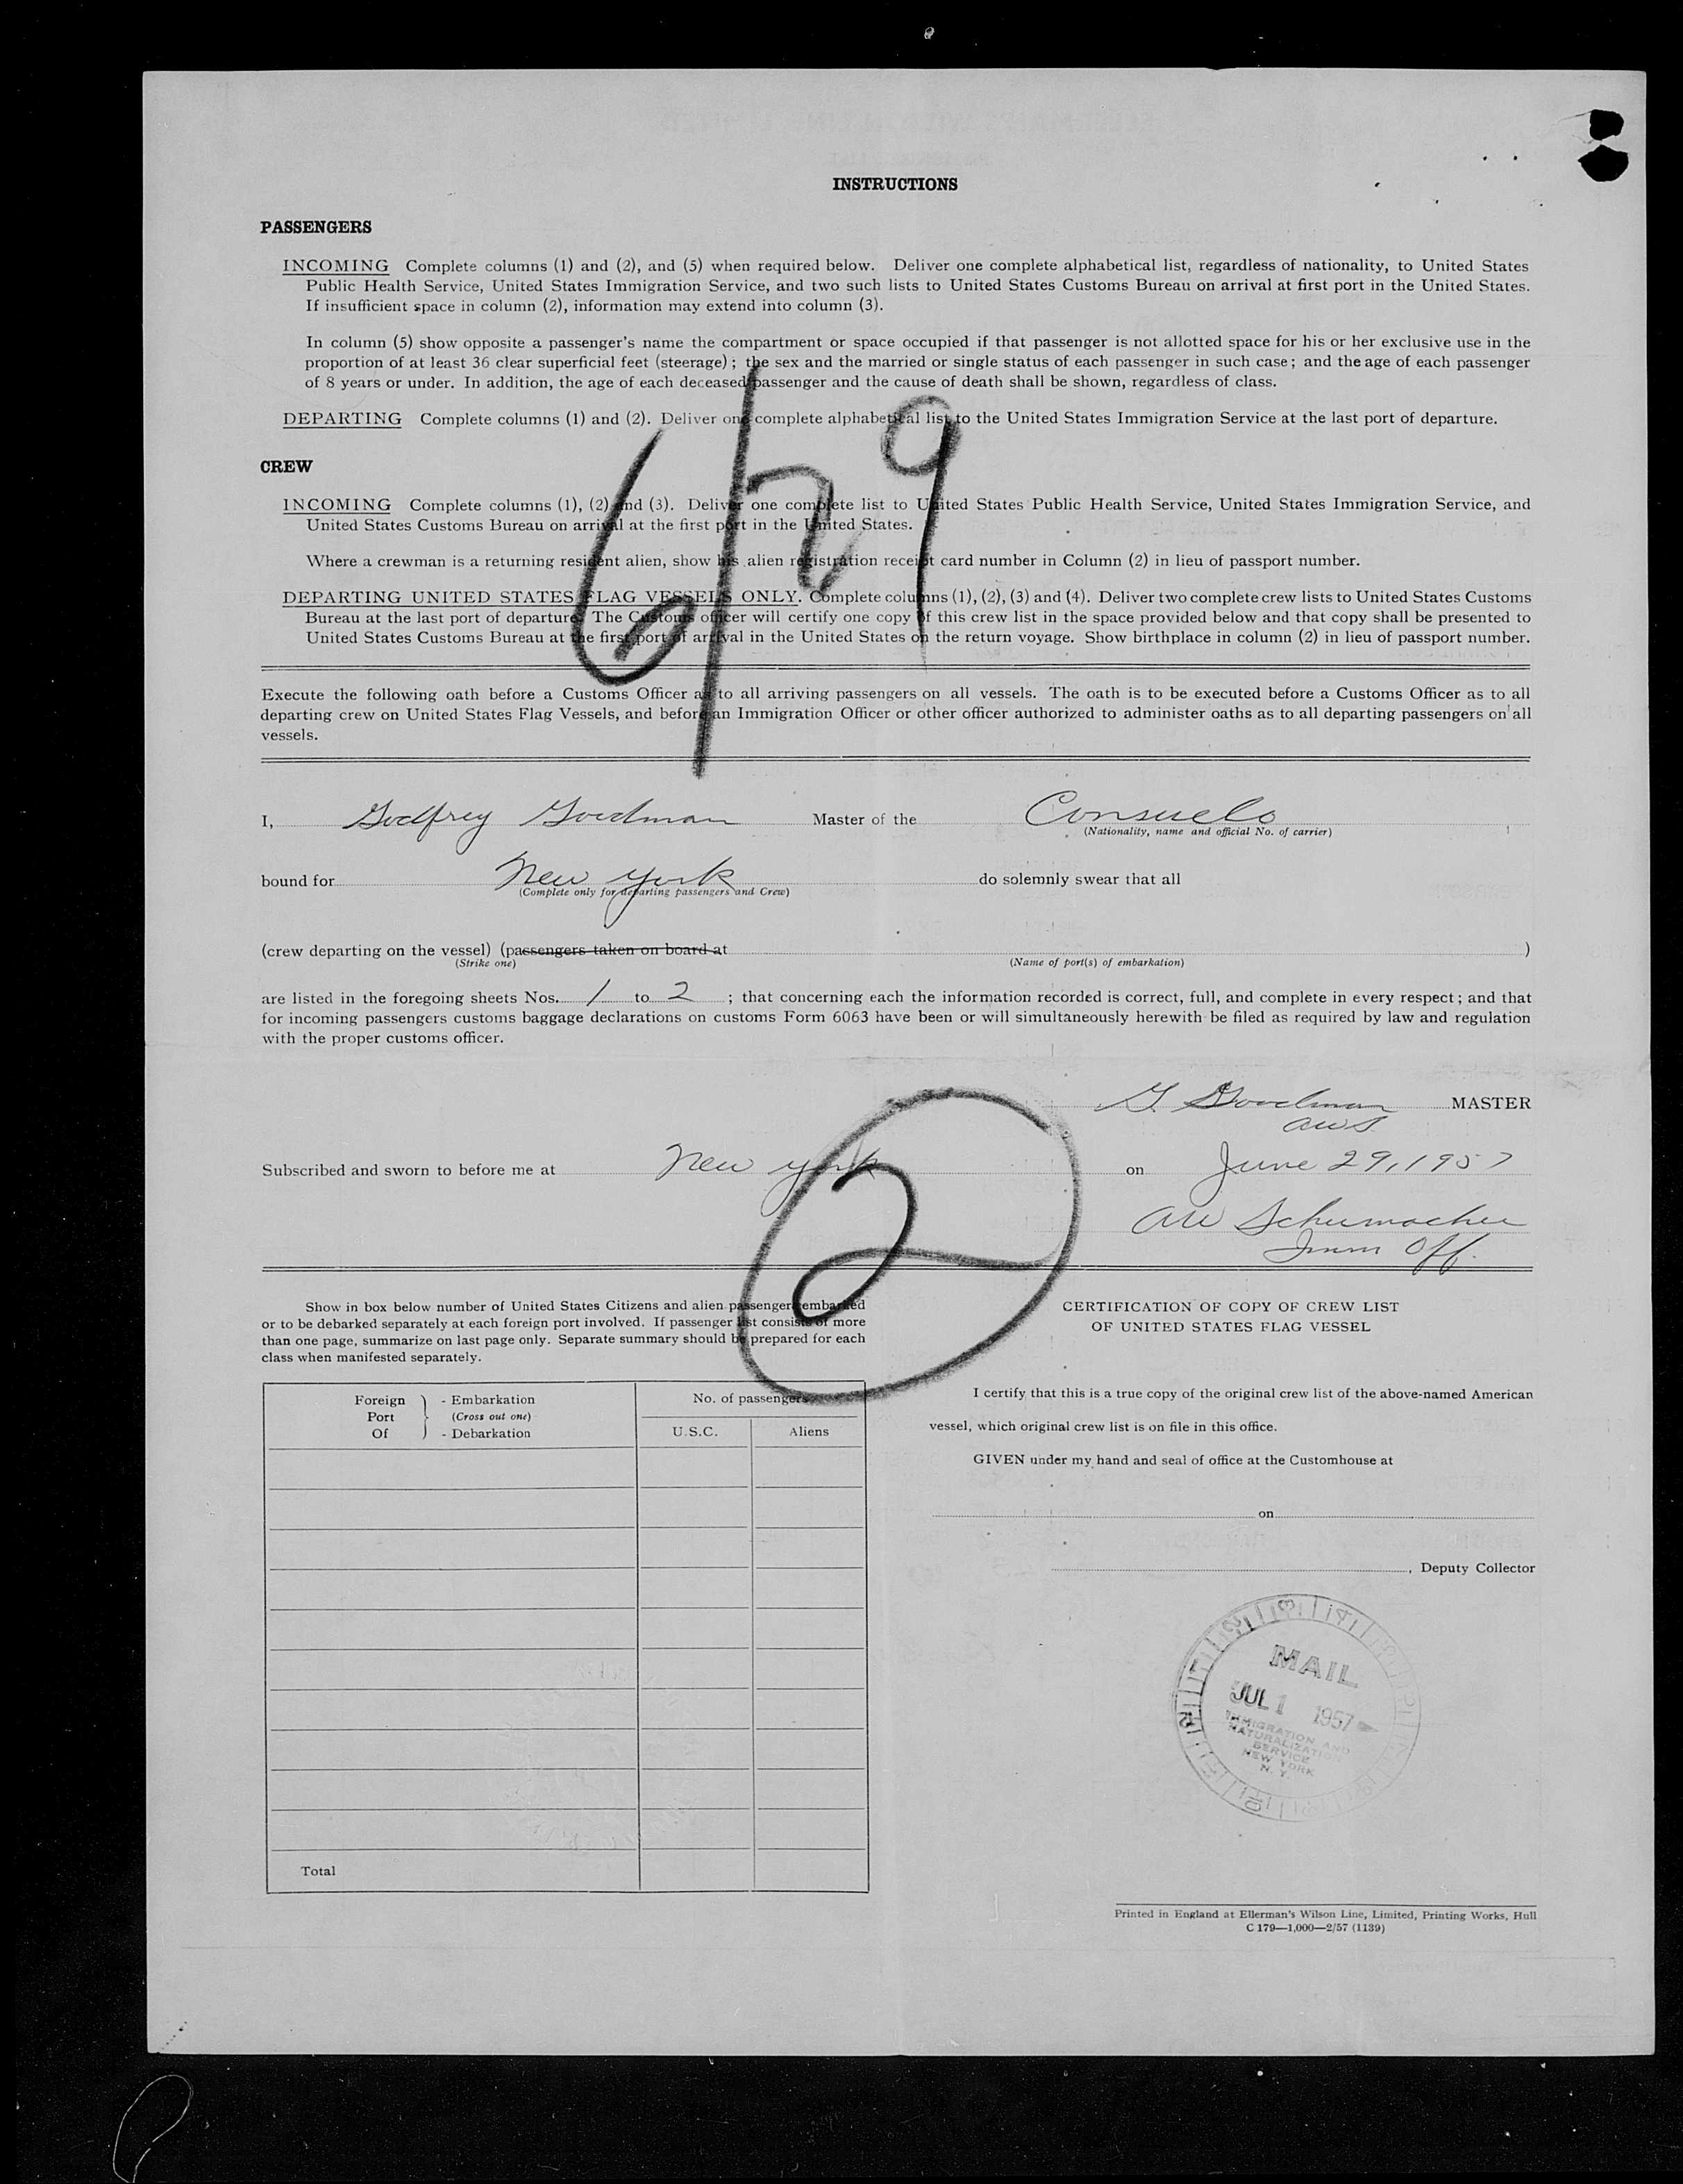 INSTRUCTIONS
PASSENGERS
INCOMING Complete columns (1) and (2), and (5) when required below. Deliver one complete alphabetical list, regardless of nationality, to United States
Public Health Service, United States Immigration Service, and two such lists to United States Customs Bureau on arrival at first port in the United States.
If insufficient space in column (2), information may extend into column (3).
In column (5) show opposite a passenger's name the compartment or space occupied if that passenger is not allotted space for his or her exclusive use in the
proportion of at least 36 clear superficial feet (steerage); the sex and the married or single status of each passenger in such case; and the age of each passenger
of 8 years or under. In addition, the age of each deceased passenger and the cause of death shall be shown, regardless of class.
DEPARTING Complete columns (1) and (2). Deliver one complete alphabetical list to the United States Immigration Service at the last port of departure.
6/29
CREW
INCOMING Complete columns (1), (2) and (3). Deliver one complete list to United States Public Health Service, United States Immigration Service, and
United States Customs Bureau on arrival at the first port in the United States.
Where a crewman is a returning resident alien, show his alien registration receipt card number in Column (2) in lieu of passport number.
DEPARTING UNITED STATES FLAG VESSELS ONLY. Complete columns (1), (2), (3) and (4). Deliver two complete crew lists to United States Customs
Bureau at the last port of departure. The Customs officer will certify one copy of this crew list in the space provided below and that copy shall be presented to
United States Customs Bureau at the first port of arrival in the United States on the return voyage. Show birthplace in column (2) in lieu of passport number.
Execute the following oath before a Customs Officer as to all arriving passengers on all vessels. The oath is to be executed before a Customs Officer as to all
departing crew on United States Flag Vessels, and before an Immigration Officer or other officer authorized to administer oaths as to all departing passengers on all
vessels.
I, Godfrey Goodman Master of the Consuelo
(Nationality, name and official No. of carrier)
bound for New York do solemnly swear that all
(Complete only for departing passengers and Crew)
(crew departing on the vessel) (passengers taken on board at )
(Strike one) (Name of port(s) of embarkation)
are listed in the foregoing sheets Nos. 1 to 2 ; that concerning each the information recorded is correct, full, and complete in every respect; and that
for incoming passengers customs baggage declarations on customs Form 6063 have been or will simultaneously herewith be filed as required by law and regulation
with the proper customs officer.
G. Goodman MASTER
aws
Subscribed and sworn to before me at New York on June 29, 1957
AW Schumacher
Imm Off.
2
Show in box below number of United States Citizens and alien passengers embarked
or to be debarked separately at each foreign port involved. If passenger list consists of more
than one page, summarize on last page only. Separate summary should be prepared for each
class when manifested separately.
Foreign Port Of - Embarkation (Cross out one) - Debarkation
No. of passengers
U.S.C. Aliens
Total
CERTIFICATION OF COPY OF CREW LIST
OF UNITED STATES FLAG VESSEL
I certify that this is a true copy of the original crew list of the above-named American
vessel, which original crew list is on file in this office.
GIVEN under my hand and seal of office at the Customhouse at
on
, Deputy Collector
MAIL
JUL 1 1957
IMMIGRATION AND
NATURALIZATION
SERVICE
NEW YORK
N. Y.
Printed in England at Ellerman's Wilson Line, Limited, Printing Works, Hull
C 179—1,000—2/57 (1139)